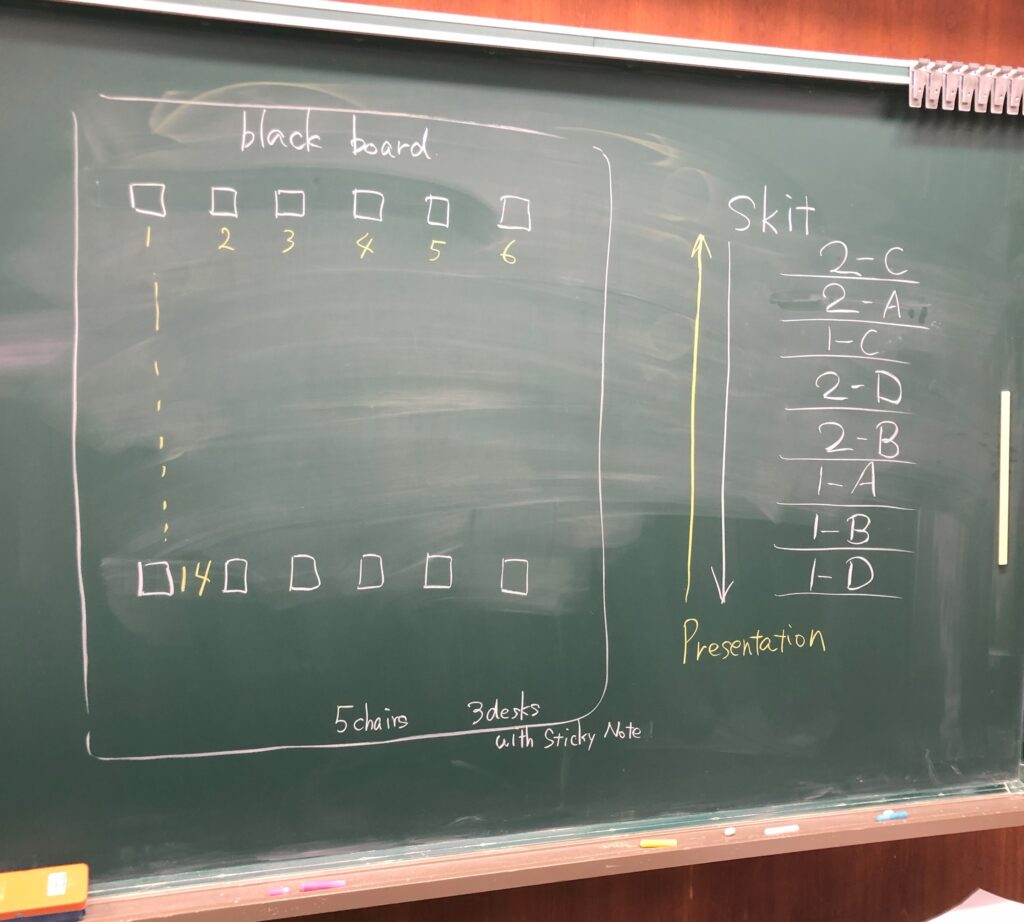 black board
1 2 3 4 5 6
14
5chairs 3desks
with Sticky Note
Skit
2-C
2-A
1-C
2-D
2-B
1-A
1-B
1-D
Presentation